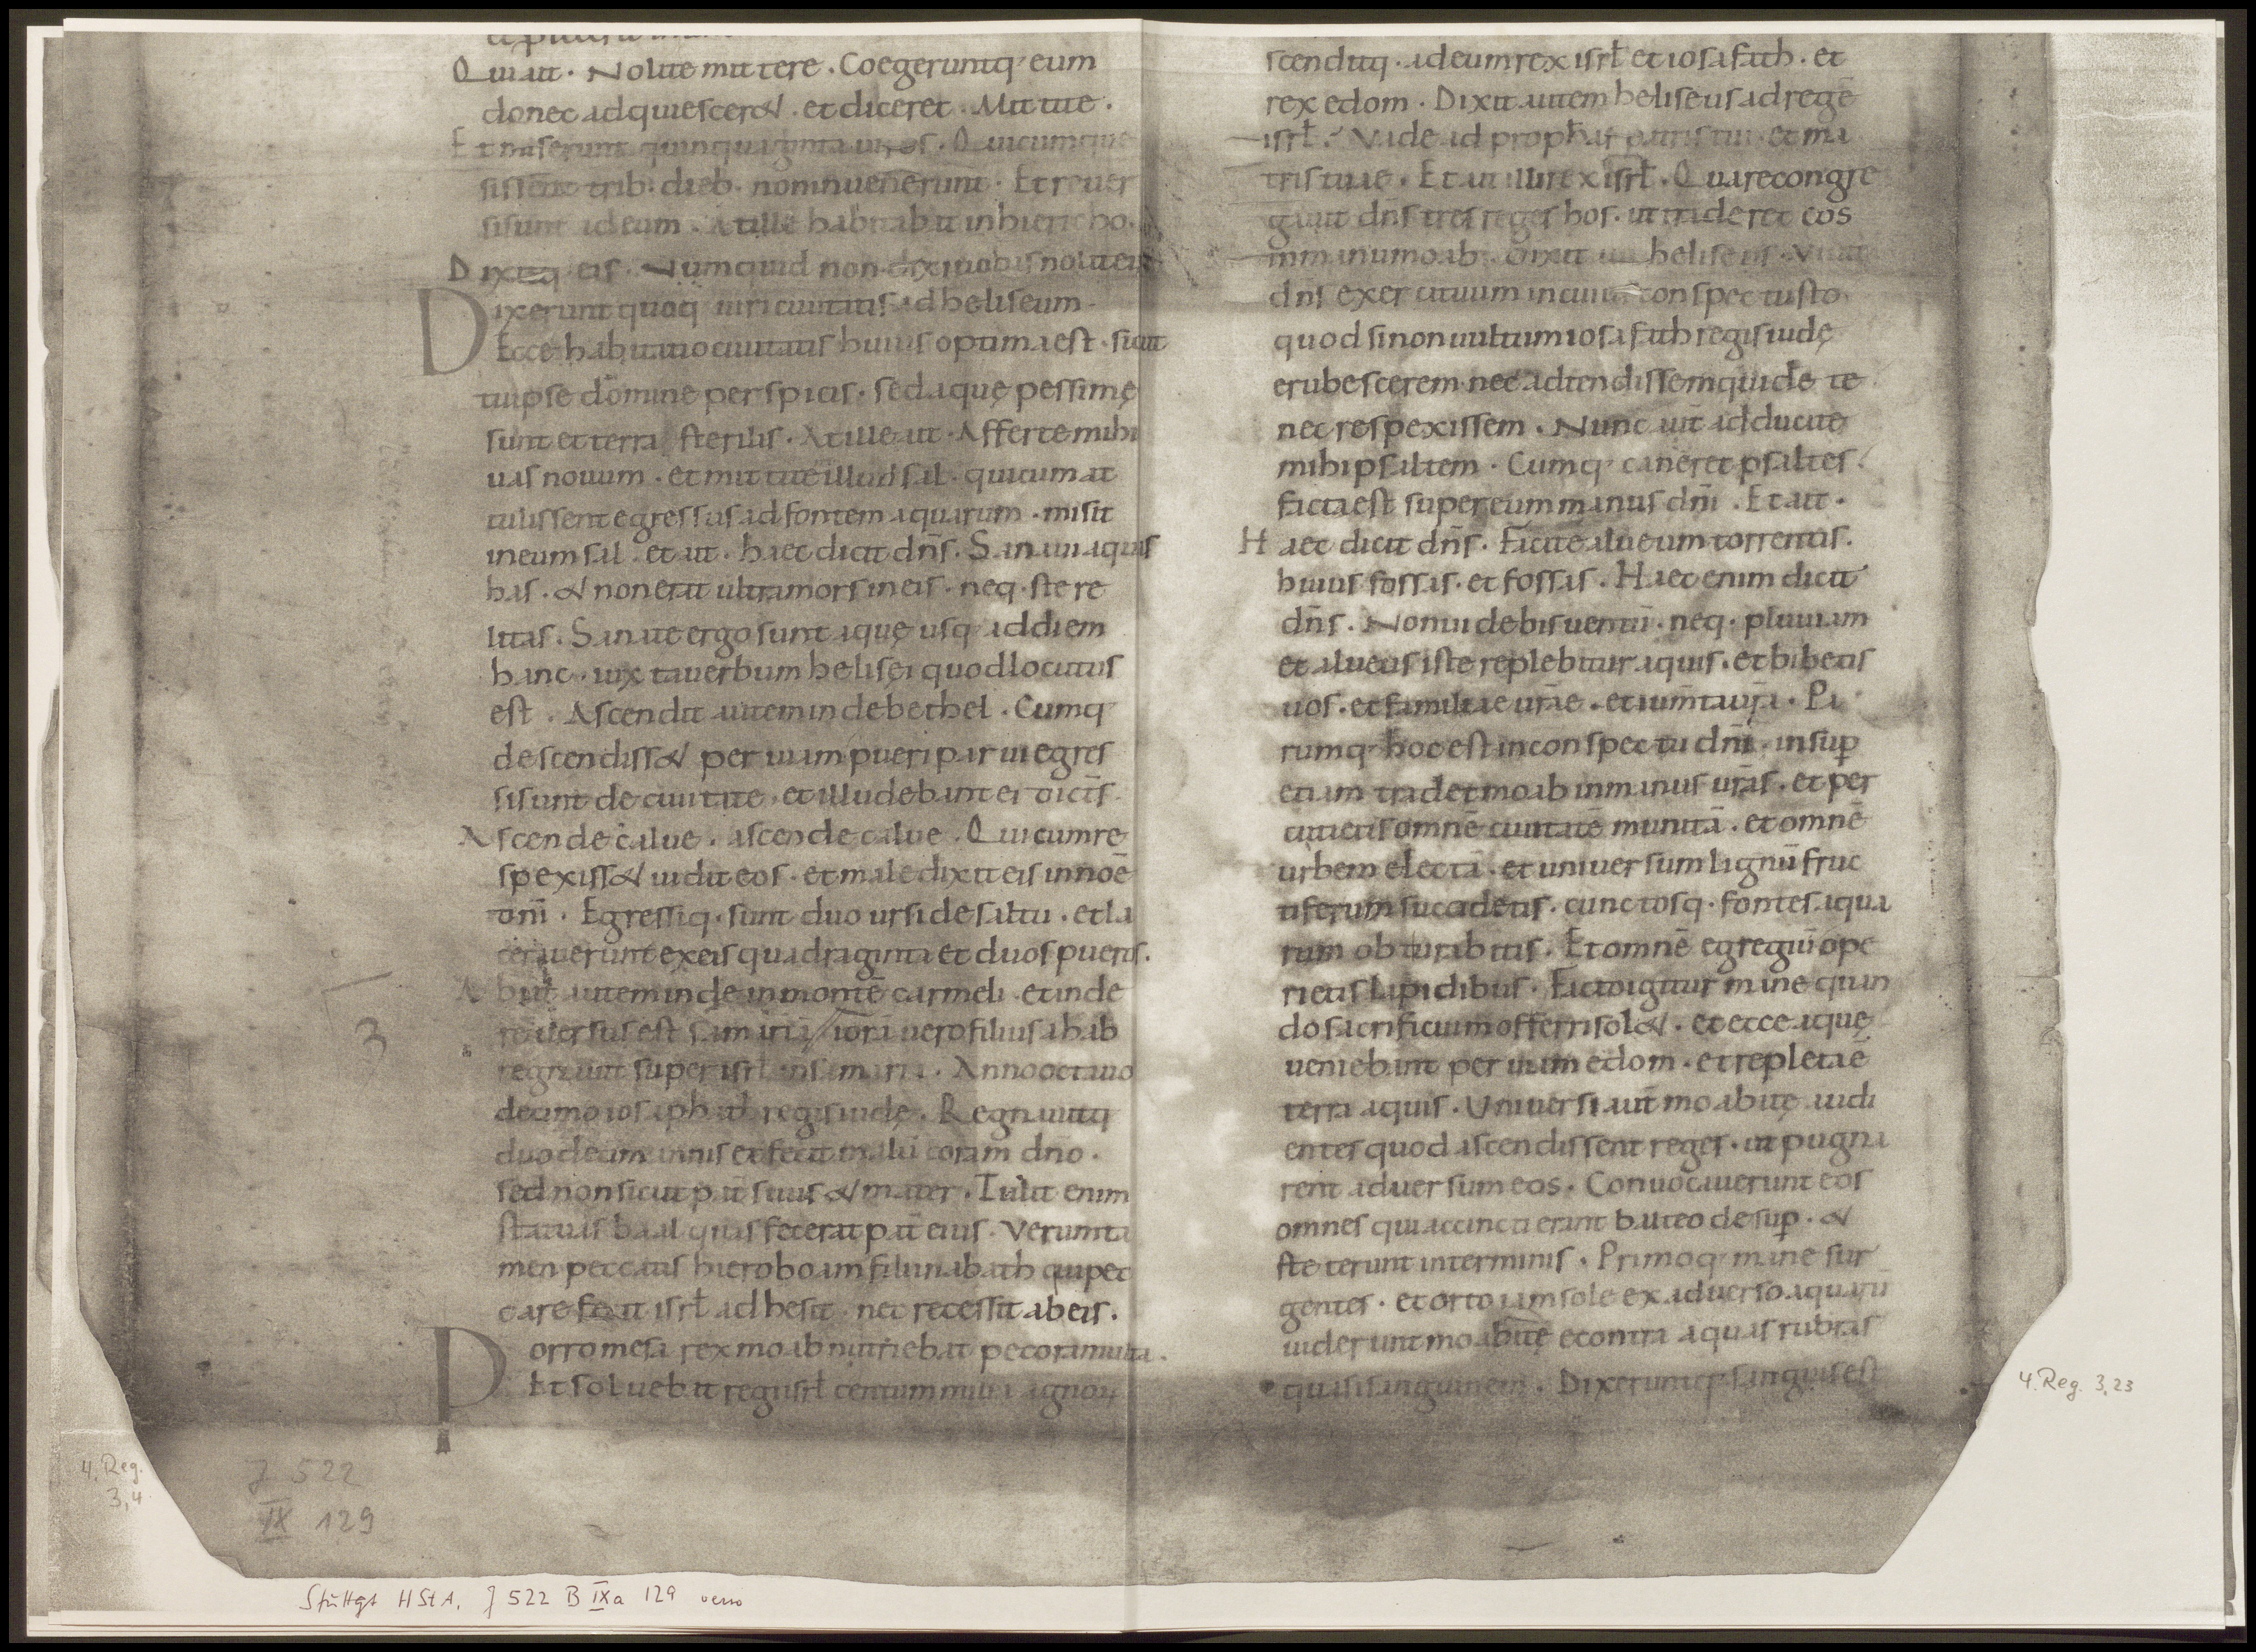 Qui ait · Nolite mittere · Coegeruntq· eum
donec adquiescer& · et diceret · Mittite ·
Et miserunt quinquaginta uiros · Qui cumque
sissent trib· dieb· non inuenerunt · Et reuer
si sunt ad eum · At ille habitabat in hiericho ·
Dixitq· eis · Numquid non dixi uobis nolite
Dixerunt quoq· uiri ciuitatis ad heliseum ·
Ecce habitatio ciuitatis huius optima est · sicut
tu ipse domine perspicis · sed aquę pessimę
sunt et terra sterilis · At ille ait · Afferte mihi
uas nouum · et mittite illud sal · qui cum at
tulissent egressus ad fontem aquarum · misit
in eum sal · et ait · haec dicit dn̄s · Sanaui aquas
has · & non erit ultra mors in eis · neq· ste re
litas · Sanate ergo sunt aquę usq· ad diem
hanc · iuxta uerbum helisei quod locutus
est · Ascendit autem inde bethel · Cumq·
descendiss& per uiam pueri parui egres
si sunt de ciuitate · et illudebant ei dicīs ·
Ascende calue · ascende calue · Qui cum re
spexiss& uidit eos · et maledixit eis in noē
dn̄i · Egressiq· sunt duo ursi de saltu · et la
cerauerunt ex eis quadraginta et duos pueros ·
Abiit autem inde in montē carmeli · et inde
reuersus est samariā iorā uero filius ahab
regnauit super isrł in samaria · Anno octauo
decimo iosaphath regis iudę · Regnauitq·
duodecim annis et fecit malū coram dn̄o ·
sed non sicut pat̄ suus & mater · Tulit enim
statuas baal quas fecerat pat̄ eius · Verumta
men peccatis hieroboam filii nabath qui pec
care fecit isrł adhesit · nec recessit ab eis ·
Porro mesa rex moab nutriebat pecora multa ·
Et soluebat regi isrł centum milia agnorum
3
4. Reg. 3,4
J 522
IX 129
Stuttgt HStA. J 522 B IXa 129 verso
scenditq· ad eum rex isrł et iosafath · et
rex edom · Dixit autem heliseus ad regē
isrł · Vade ad prophas patris tui · et ma
tris tuae · Et ait illi rex isrł · Quare congre
gauit dn̄s tres reges hos · ut traderet eos
in manu moab · Dixit heliseus · Viuit
dn̄s exercituum in cuius conspectu sto
quod si non uultum iosafath regis iudę
erubescerem nec adtendissem quidē te
nec respexissem · Nunc aūt adducite
mihi psaltem · Cumq· caneret psaltes ·
facta est super eum manus dn̄i · Et ait ·
Haec dicit dn̄s · Facite alueum torrentis
huius fossas · et fossas · Haec enim dicit
dn̄s · Non uidebis uentū · neq· pluuiam
et alueus iste replebitur aquis · et bibetis
uos · et familiae ur̄ae · et ium̄ta ur̄a · Pa
rumq· hoc est in conspectu dn̄i · insup̱
etiam tradet moab in manus ur̄as · et per
cutietis omnē ciuitatē munitā · et omnē
urbem electā · et uniuersum lignū fruc
tiferum succidetis · cunctosq· fontes aqua
rum obturabitis · Et omnē agrū egregiū ope
rietis lapidibus · Factū igitur mane quan
do sacrificium offerri sol& · et ecce aquę
ueniebant per uiam edom · et repleta ē
terra aquis · Uniuersi aūt moabitę audi
entes quod ascendissent reges · ut pugna
rent aduersum eos · Conuocauerunt eos
omnes qui accincti erant balteo desup̱ · &
steterunt in terminis · Primoq· mane sur
gentes · et orto iam sole ex aduerso aquarū
uiderunt moabitę e contra aquas rubras
quasi sanguinem · Dixeruntq· sanguis est
4. Reg. 3,23